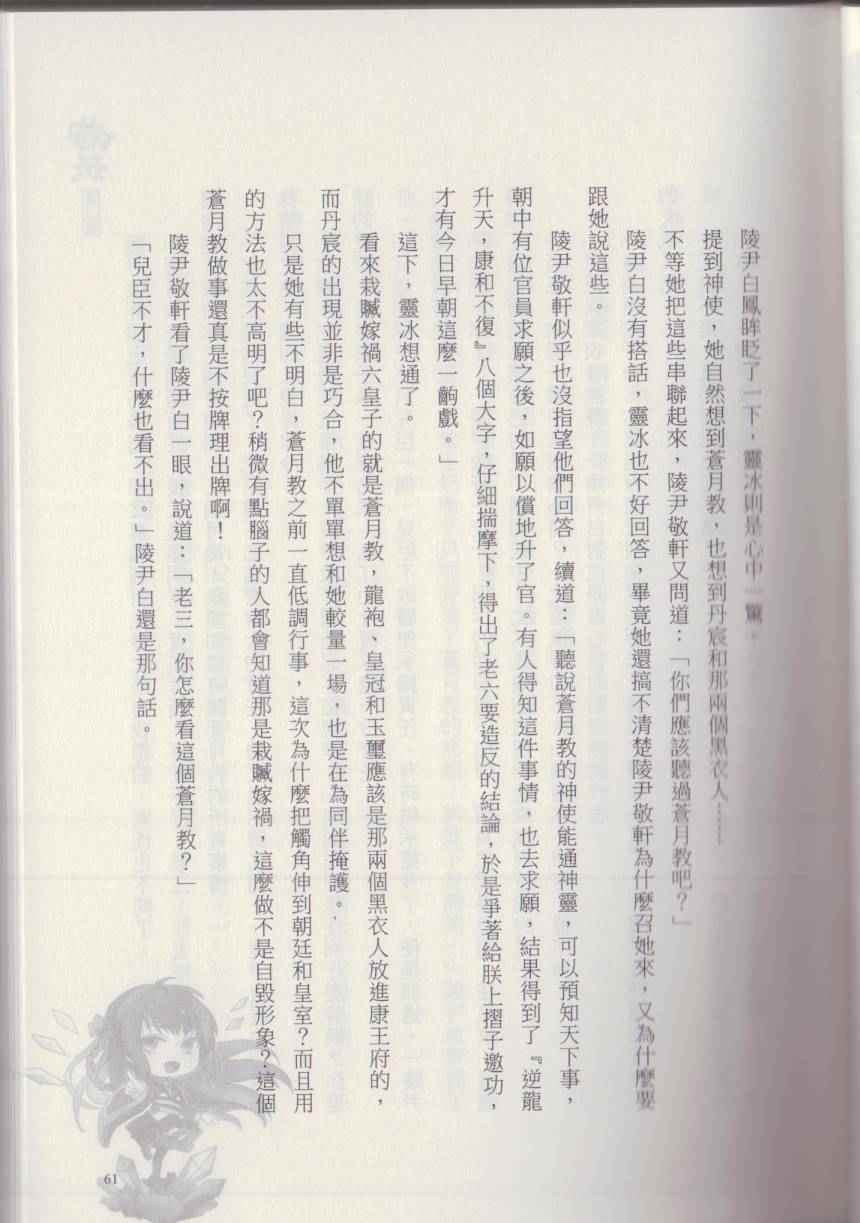 陵尹白鳳眸眨了一下，靈冰則是心中一驚。
提到神使，她自然想到蒼月教，也想到丹宸和那兩個黑衣人……
不等她把這些串聯起來，陵尹敬軒又問道：「你們應該聽過蒼月教吧？」
陵尹白沒有搭話，靈冰也不好回答，畢竟她還搞不清楚陵尹敬軒為什麼召她來，又為什麼要
跟她說這些。
陵尹敬軒似乎也沒指望他們回答，續道：「聽說蒼月教的神使能通神靈，可以預知天下事，
朝中有位官員求願之後，如願以償地升了官。有人得知這件事情，也去求願，結果得到了『逆龍
升天，康和不復』八個大字，仔細揣摩下，得出了老六要造反的結論，於是爭著給朕上摺子邀功，
才有今日早朝這麼一齣戲。」
這下，靈冰想通了。
看來栽贓嫁禍六皇子的就是蒼月教，龍袍、皇冠和玉璽應該是那兩個黑衣人放進康王府的，
而丹宸的出現並非是巧合，他不單單想和她較量一場，也是在為同伴掩護。
只是她有些不明白，蒼月教之前一直低調行事，這次為什麼把觸角伸到朝廷和皇室？而且用
的方法也太不高明了吧？稍微有點腦子的人都會知道那是栽贓嫁禍，這麼做不是自毀形象？這個
蒼月教做事還真是不按牌理出牌啊！
陵尹敬軒看了陵尹白一眼，說道：「老三，你怎麼看這個蒼月教？」
「兒臣不才，什麼也看不出。」陵尹白還是那句話。
61